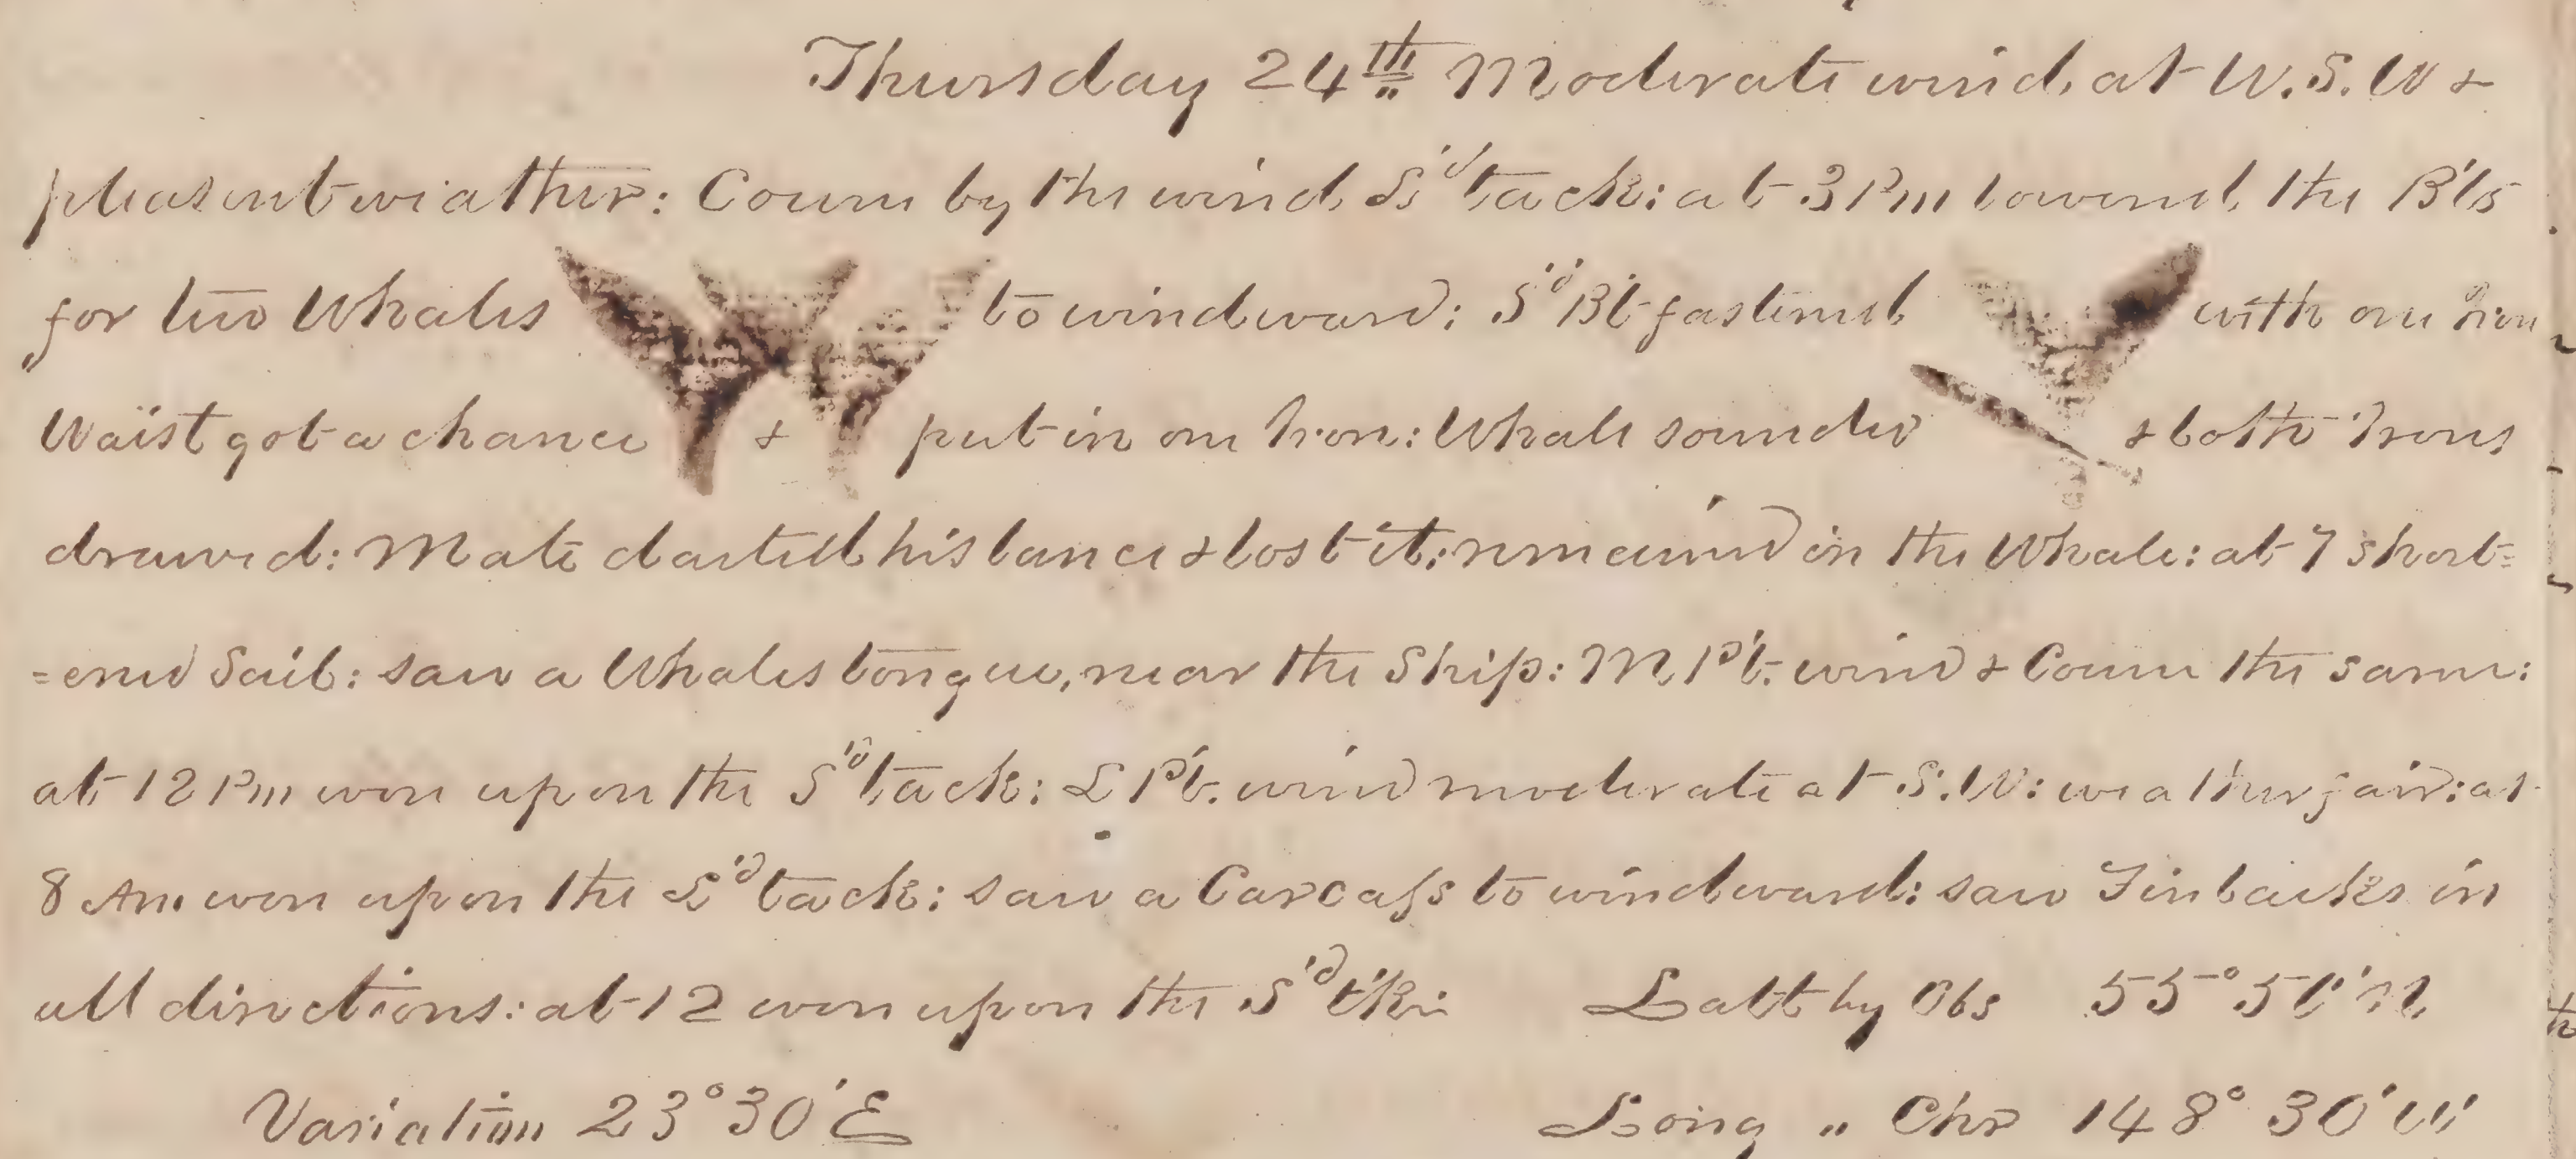 Thursday 24th Moderate wind, at W. S. W &
pleasent weather: Course by the wind, S'd tack: at 3 Pm lowered, the B'ts
for two Whales to windward; S'd Bt fastened with one Iron
Waist got a chance & put in one Iron: Whale sounded & both Irons
drawed: Mate darted his lance & lost it; remained in the Whale: at 7 short=
=ened Sail: saw a Whales tongue, near the Ship: M, P't. wind & Course the same:
at 12 Pm wore upon the S'd tack: L P't. wind moderate at S. W: weather fair: at
8 Am wore upon the L'd tack: saw a Carcass to windward: saw Finbacks in
all directions: at 12 wore upon the S'd t'k: Latt by Obs 55° 51' N
Variation 23° 30' E Long " Chr 148° 30' W